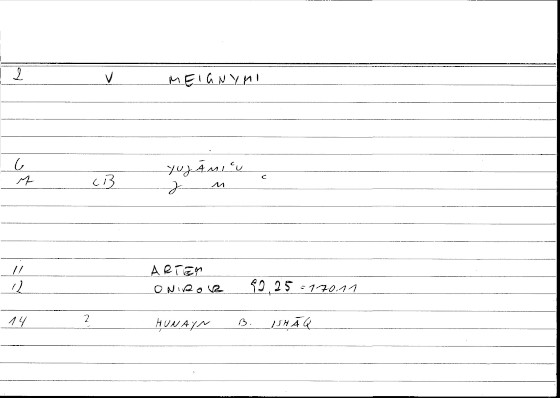 2 V MEIGNYMI
6 YUJĀMIʿU
M CB J M C
11 ARTEM
12 ONIROCR 92,25 = 170.11
14 ? ḤUNAYN B. ISḤĀQ